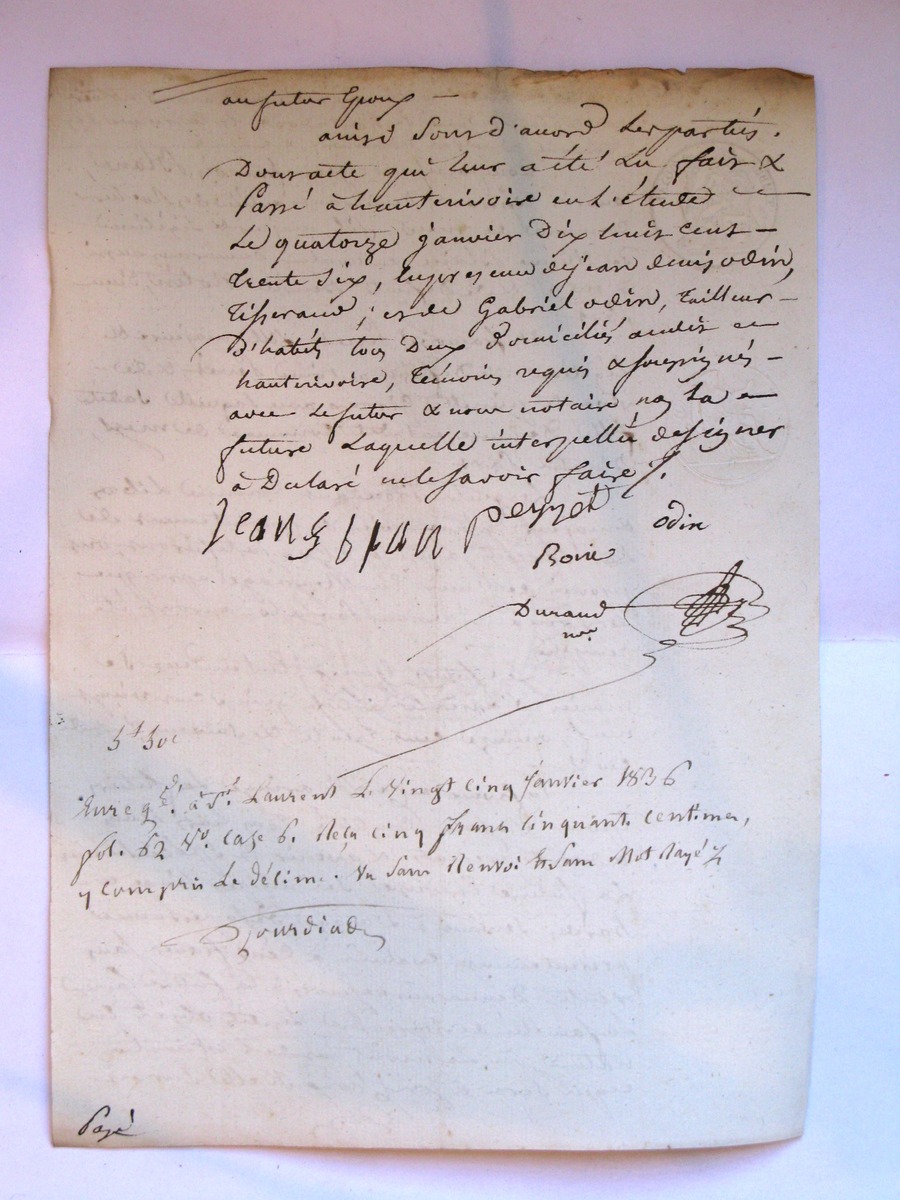 au futur Epoux —
ainsi sont d'accord les parties.
Dont acte qui leur a été lu fait &
Passé à hauterivoire en l'étude
Le quatorze janvier Dix huit cent
trente six, En presence de jean denis odin,
Tisserand, et de Gabriel odin, tailleur
D'habits tous Deux Domiciliés audit
hauterivoire, Témoins requis & soussignés
avec le futur & nous notaire non la
future Laquelle interpellée de signer
à Declaré ne le savoir faire /.
Jean peyzet
odin
Durand
nre
5f 50c
Enregé. à St. Laurent Le vingt cinq Janvier 1836
fol. 62 Vo. Case 6. Reçu cinq francs cinquante centimes,
y compris le décime. Vu sans Renvoi et sans Mot Rayé
Payé